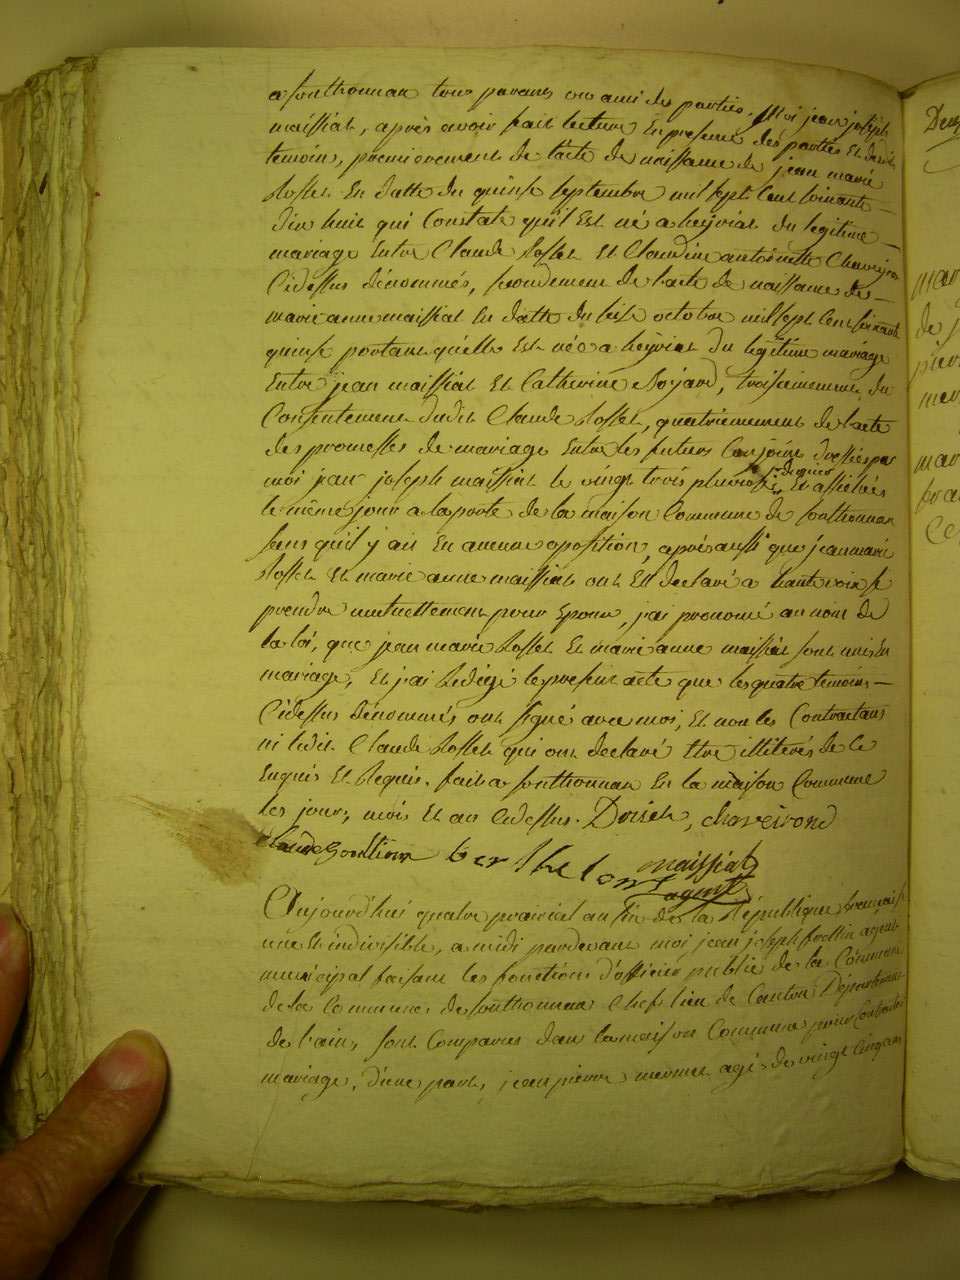 a Sonthonnax tous parans ou ami des parties. Moi jean joseph
maissiat, après avoir fait lecture en presence des parties et desdits
temoins, premierement de l'acte de naissance de jean marie
Rosset en datte du quinse septembre mil sept cent soixante
dix huit qui Constate qu'il est né a heyriat du legitime
mariage entre Claude Rosset et Claudine antoinette
Cidessus dénommés, secondement de l'acte de naissance de
marie anne maissiat en datte du seise octobre mil sept cent soixante
quinse portant qu'elle est née a heyriat du legitime mariage
entre jean maissiat et Catherine Bojard, troisiemement du
Consentement dudit Claude Rosset, quatriemement de l'acte
des promesses de mariage entre les futurs Conjoins dressés par
moi jean joseph maissiat le vingt trois pluviose dernier et affichés
le même jour a la porte de la maison Commune de Sonthonnax
sans qu'il y ait eu aucune oposition, après aussi que jean marie
Rosset et marie anne maissiat ont eu declaré a haute voix se
prendre mutuellement pour Epoux, j'ai prononcé au nom de
la loi, que jean marie Rosset et marie anne maissiat sont unis en
mariage, et j'ai Redigé le present acte que les quatre temoins
Cidessus dénommés ont signé avec moi, et non les Contractans
ni ledit Claude Rosset qui ont declaré etre illiterés de ce
enquis et Requis. fait a Sonthonnax en la maison Commune
les jour, mois et an Cidessus. chareirond
Claude maissiat
agent
Aujourd'hui quatre prairial an six de la République française
une et indivisible, a midi pardevant moi jean joseph agent
municipal faisant les fonctions d'officier public de la Commune
de la Commune de Sonthonnax Chef lieu de Canton Département
de l'ain, sont Comparus dans la maison Commune pour Contracter
mariage, d'une part, jean pierre mermet agé de vingt cinq ans